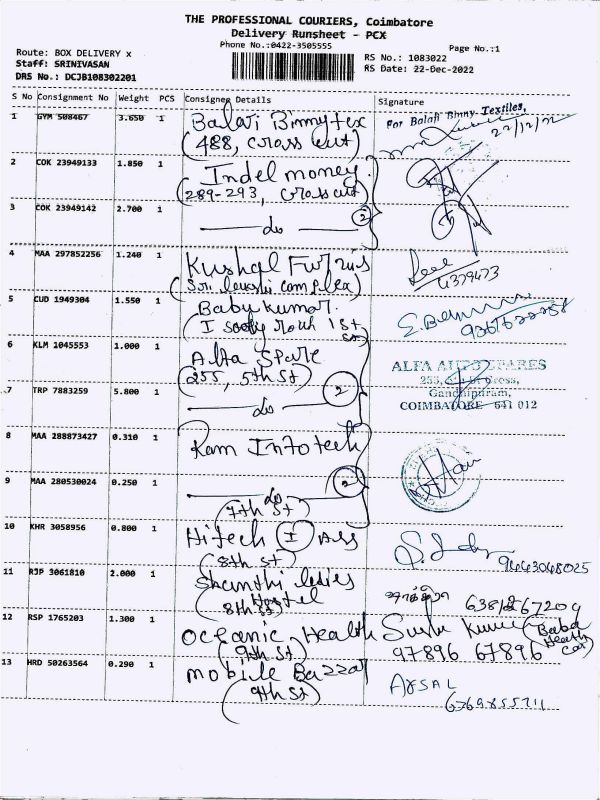 THE PROFESSIONAL COURIERS, Coimbatore
Delivery Runsheet - PCX
Phone No.:0422-3505555
Page No.:1
Route: BOX DELIVERY x
Staff: SRINIVASAN
DRS No.: DCJB108302201
RS No.: 1083022
RS Date: 22-Dec-2022
S No Consignment No Weight PCS Consignee Details Signature
1 GYM 508467 3.650 1 Balaji Binny tex For Balaji Binny Textiles,
(488, cross cut) 22/12/22
2 COK 23949133 1.850 1 Indel money
(289-293, cross cut)
3 COK 23949142 2.700 1 do 2
4 MAA 297852256 1.240 1 Kushal Furnis
(Sri lakshi complex)
5 CUD 1949304 1.550 1 Babu kumar
6 KLM 1045553 1.000 1 Alfa Spare ALFA AUTO SPARES
(255, 5th St) 255, Cross,
Gandhipuram,
7 TRP 7883259 5.800 1 do 2 COIMBATORE - 641 012
8 MAA 288873427 0.310 1 Ram Infotech
9 MAA 280530024 0.250 1 do 2
(7th St)
10 KHR 3058956 0.800 1 Hitech (I) Ass 9443048025
(8th St)
11 RJP 3061810 2.000 1 Shanthi ladies Hostel
(8th St)
12 RSP 1765203 1.300 1 Oceanic Health
(9th St) 97896 67896
13 HRD 50263564 0.290 1 mobile Bazzar ARSAL
(9th St)